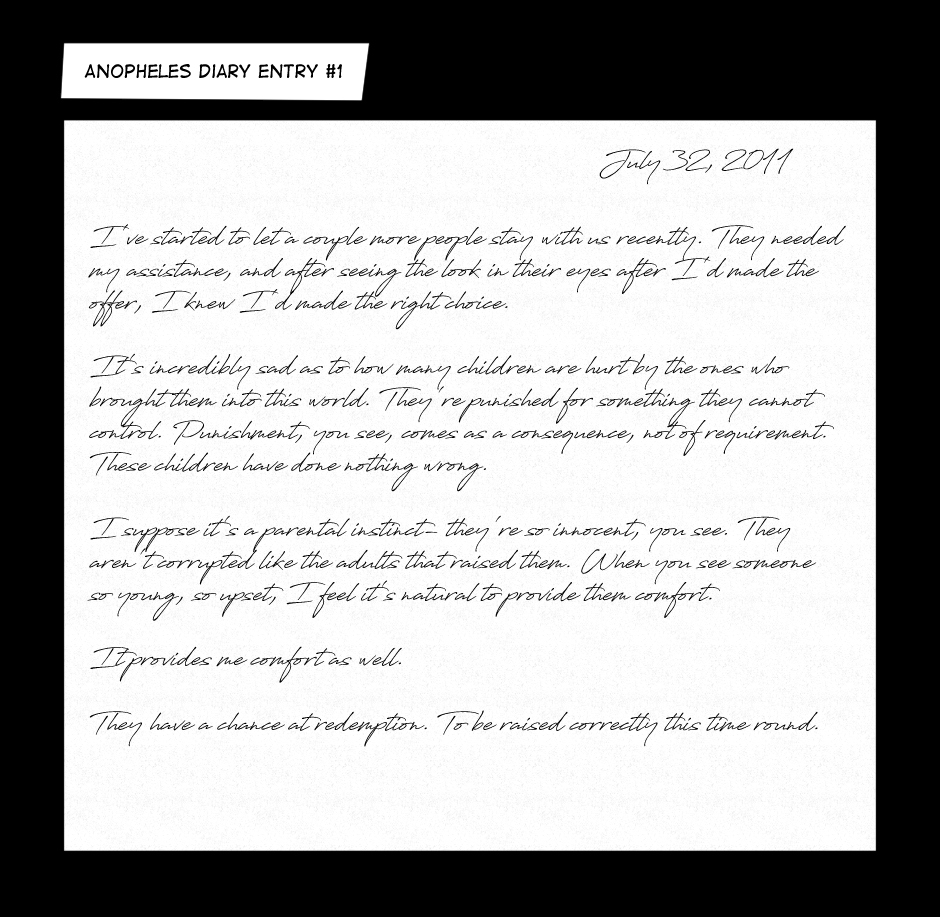 ANOPHELES DIARY ENTRY #1
July 32, 2011
I've started to let a couple more people stay with us recently. They needed
my assistance, and after seeing the look in their eyes after I'd made the
offer, I knew I'd made the right choice.
It's incredibly sad as to how many children are hurt by the ones who
brought them into this world. They're punished for something they cannot
control. Punishment, you see, comes as a consequence, not of requirement.
These children have done nothing wrong.
I suppose it's a parental instinct- they're so innocent, you see. They
aren't corrupted like the adults that raised them. When you see someone
so young, so upset, I feel it's natural to provide them comfort.
It provides me comfort as well.
They have a chance at redemption. To be raised correctly this time round.